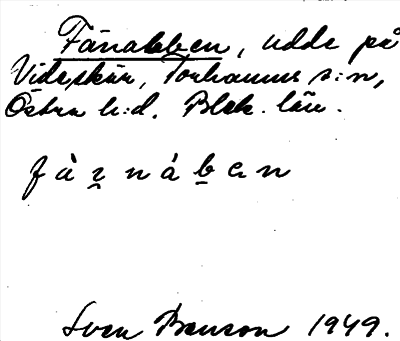 Fånabben, udde på
Videskär, Torhamns s:n,
Östra h:d. Blek. län.
f à ṟ n á ḇ e n
Sven Benson 1949.